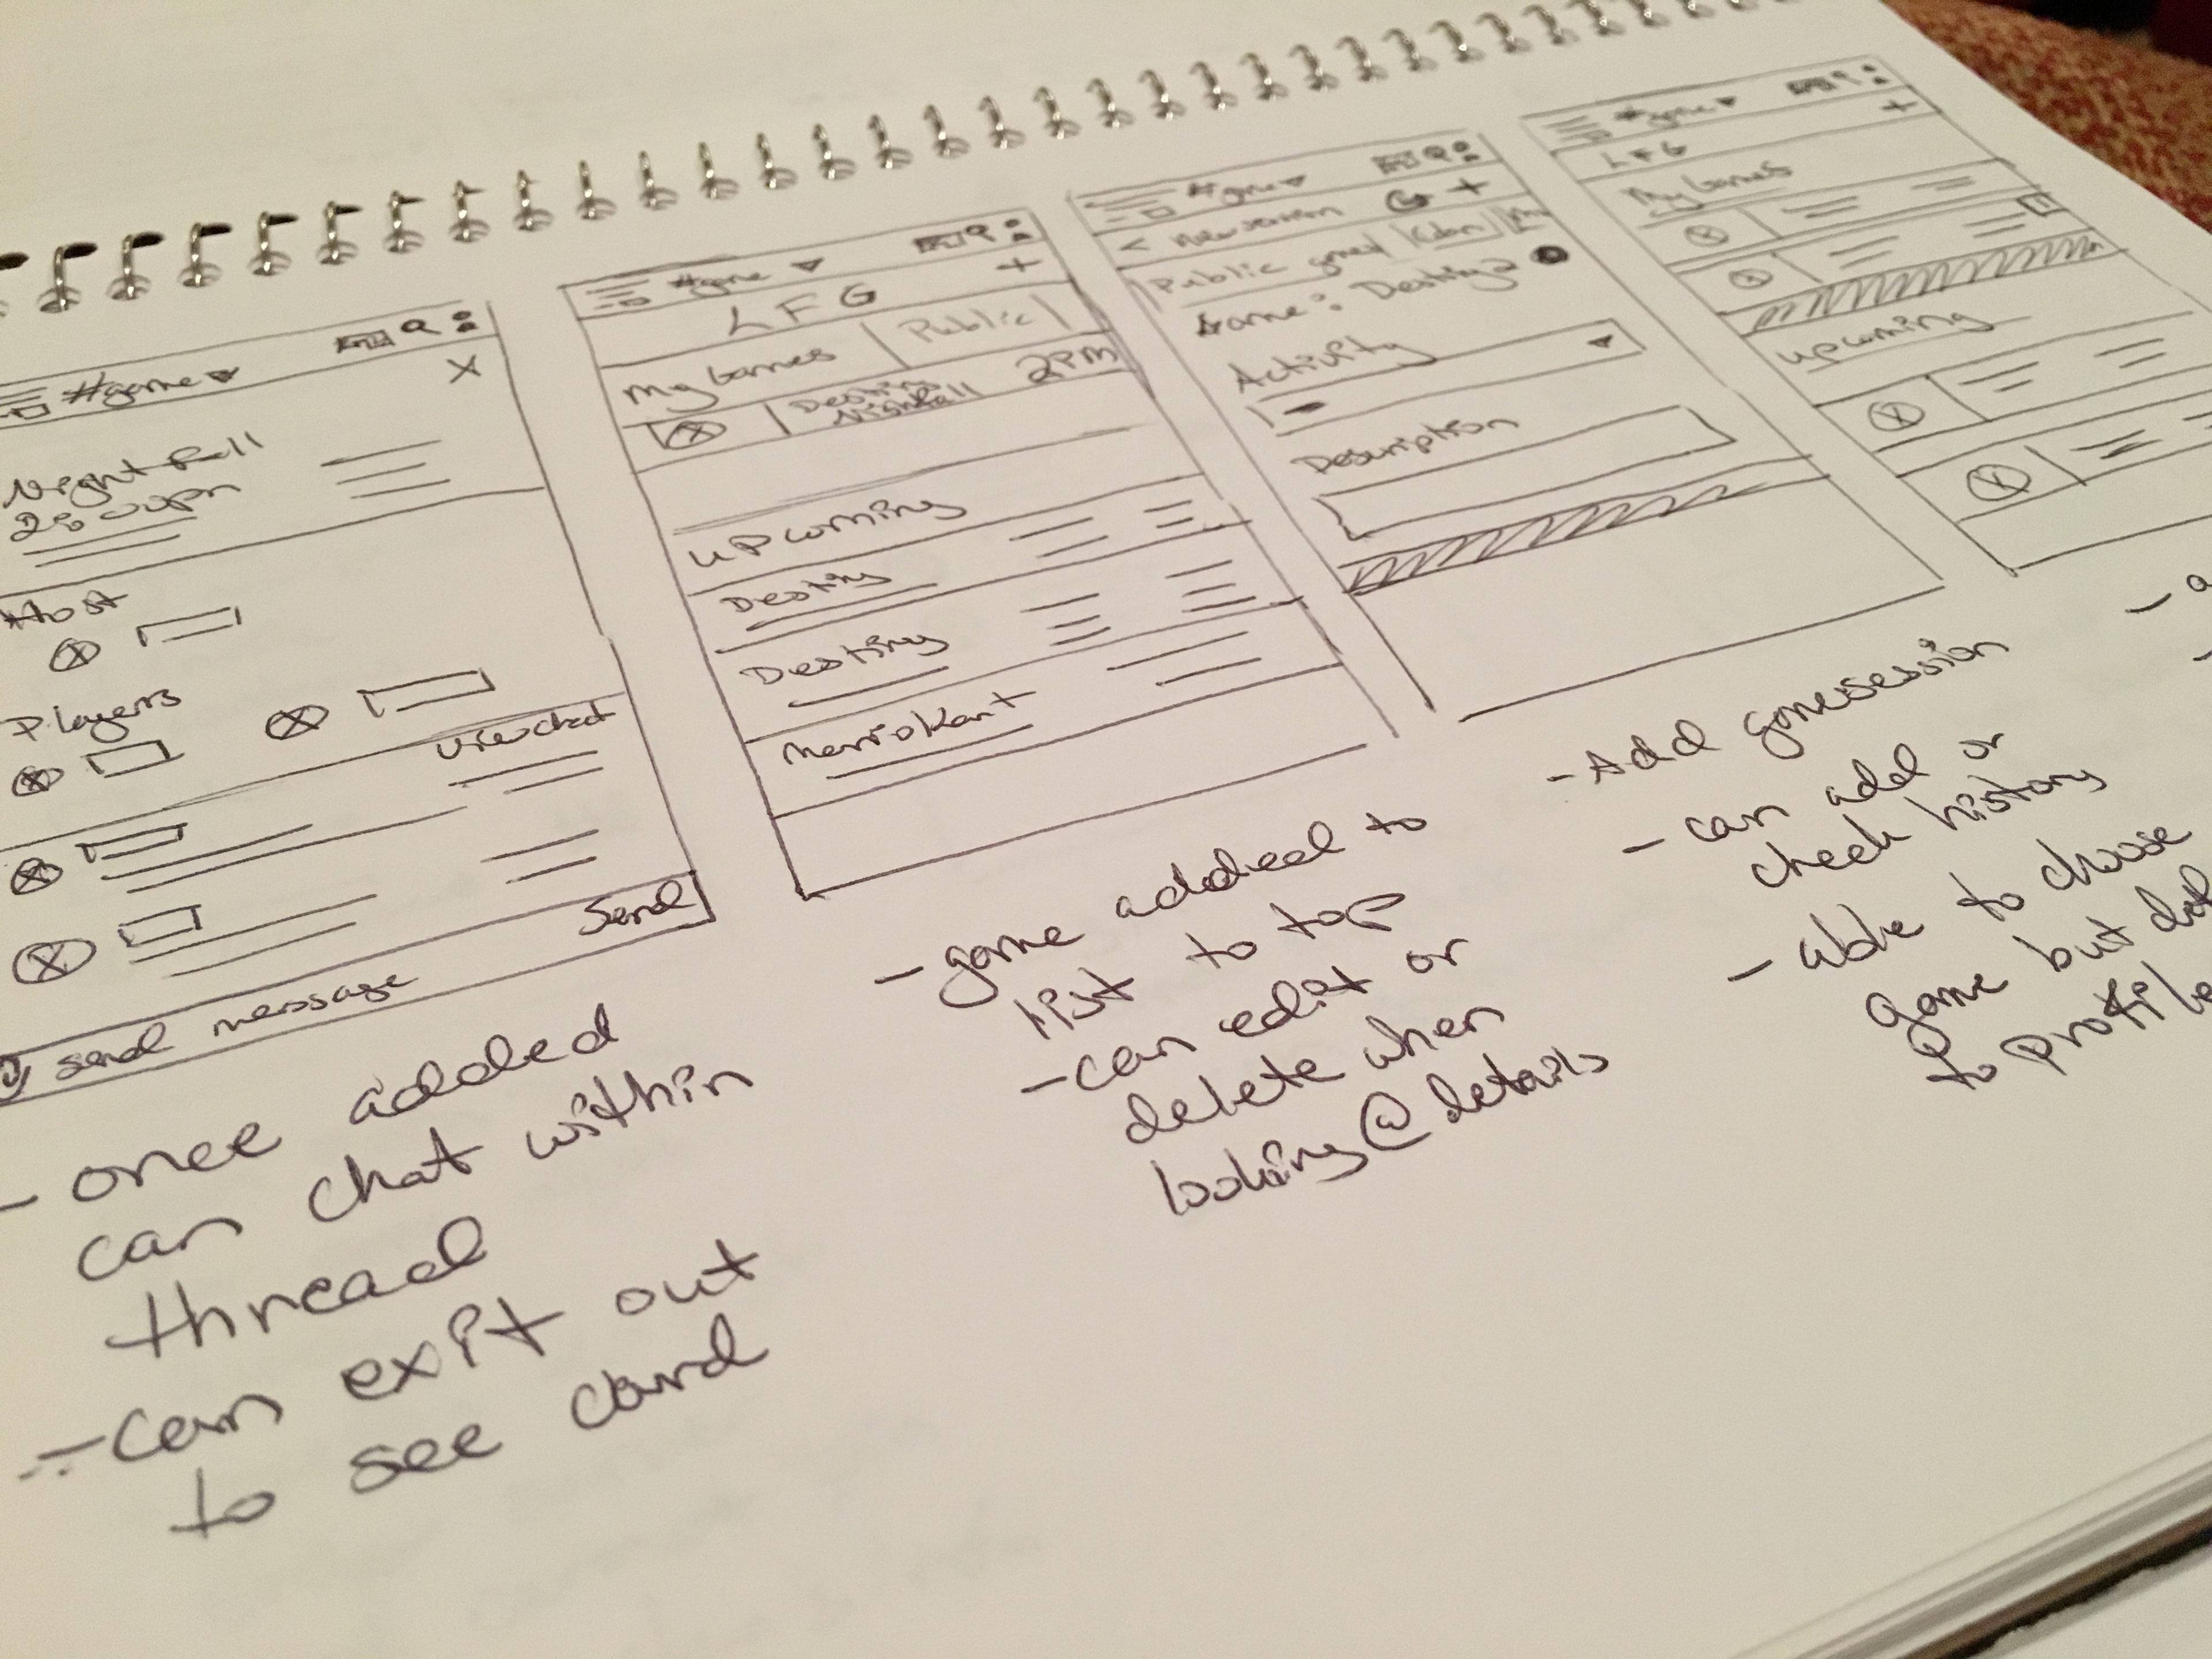 #game
X
Nightfall
2:00pm
Host
Players
view chat
Send
send message
- once added
can chat within
thread
- can exit out
to see card
#game
+
LFG
My Games
Public
Destiny
Nightfall
2PM
upcoming
Destiny
Destiny
MarioKart
- game added to
list to top
- can edit or
delete when
looking @ details
#game
< New session
+
Public
Clan
Game: Destiny 2
Activity
Description
- Add gamesession
- can add or
check history
- able to choose
game but
to
#game
+
LFG
My Games
upcoming